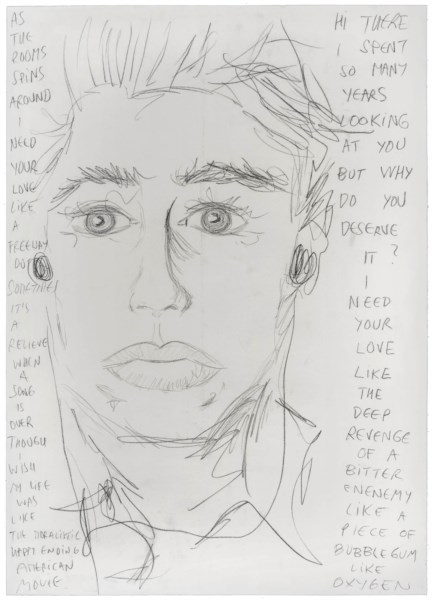 AS
THE
ROOMS
SPINS
AROUND
I
NEED
YOUR
LOVE
LIKE
A
FREEWAY
DO
SOMETIMES
IT'S
A
RELIEVE
WHEN
A
SONG
IS
OVER
THOUGH
I
WISH
MY LIFE
WAS
LIKE
THE
HAPPY ENDING
AMERICAN
MOVIE
HI THERE
I SPENT
SO MANY
YEARS
LOOKING
AT YOU
BUT WHY
DO YOU
DESERVE
IT?
I
NEED
YOUR
LOVE
LIKE
THE
DEEP
REVENGE
OF A
BITTER
ENENEMY
LIKE A
PIECE OF
BUBBLEGUM
LIKE
OXYGEN